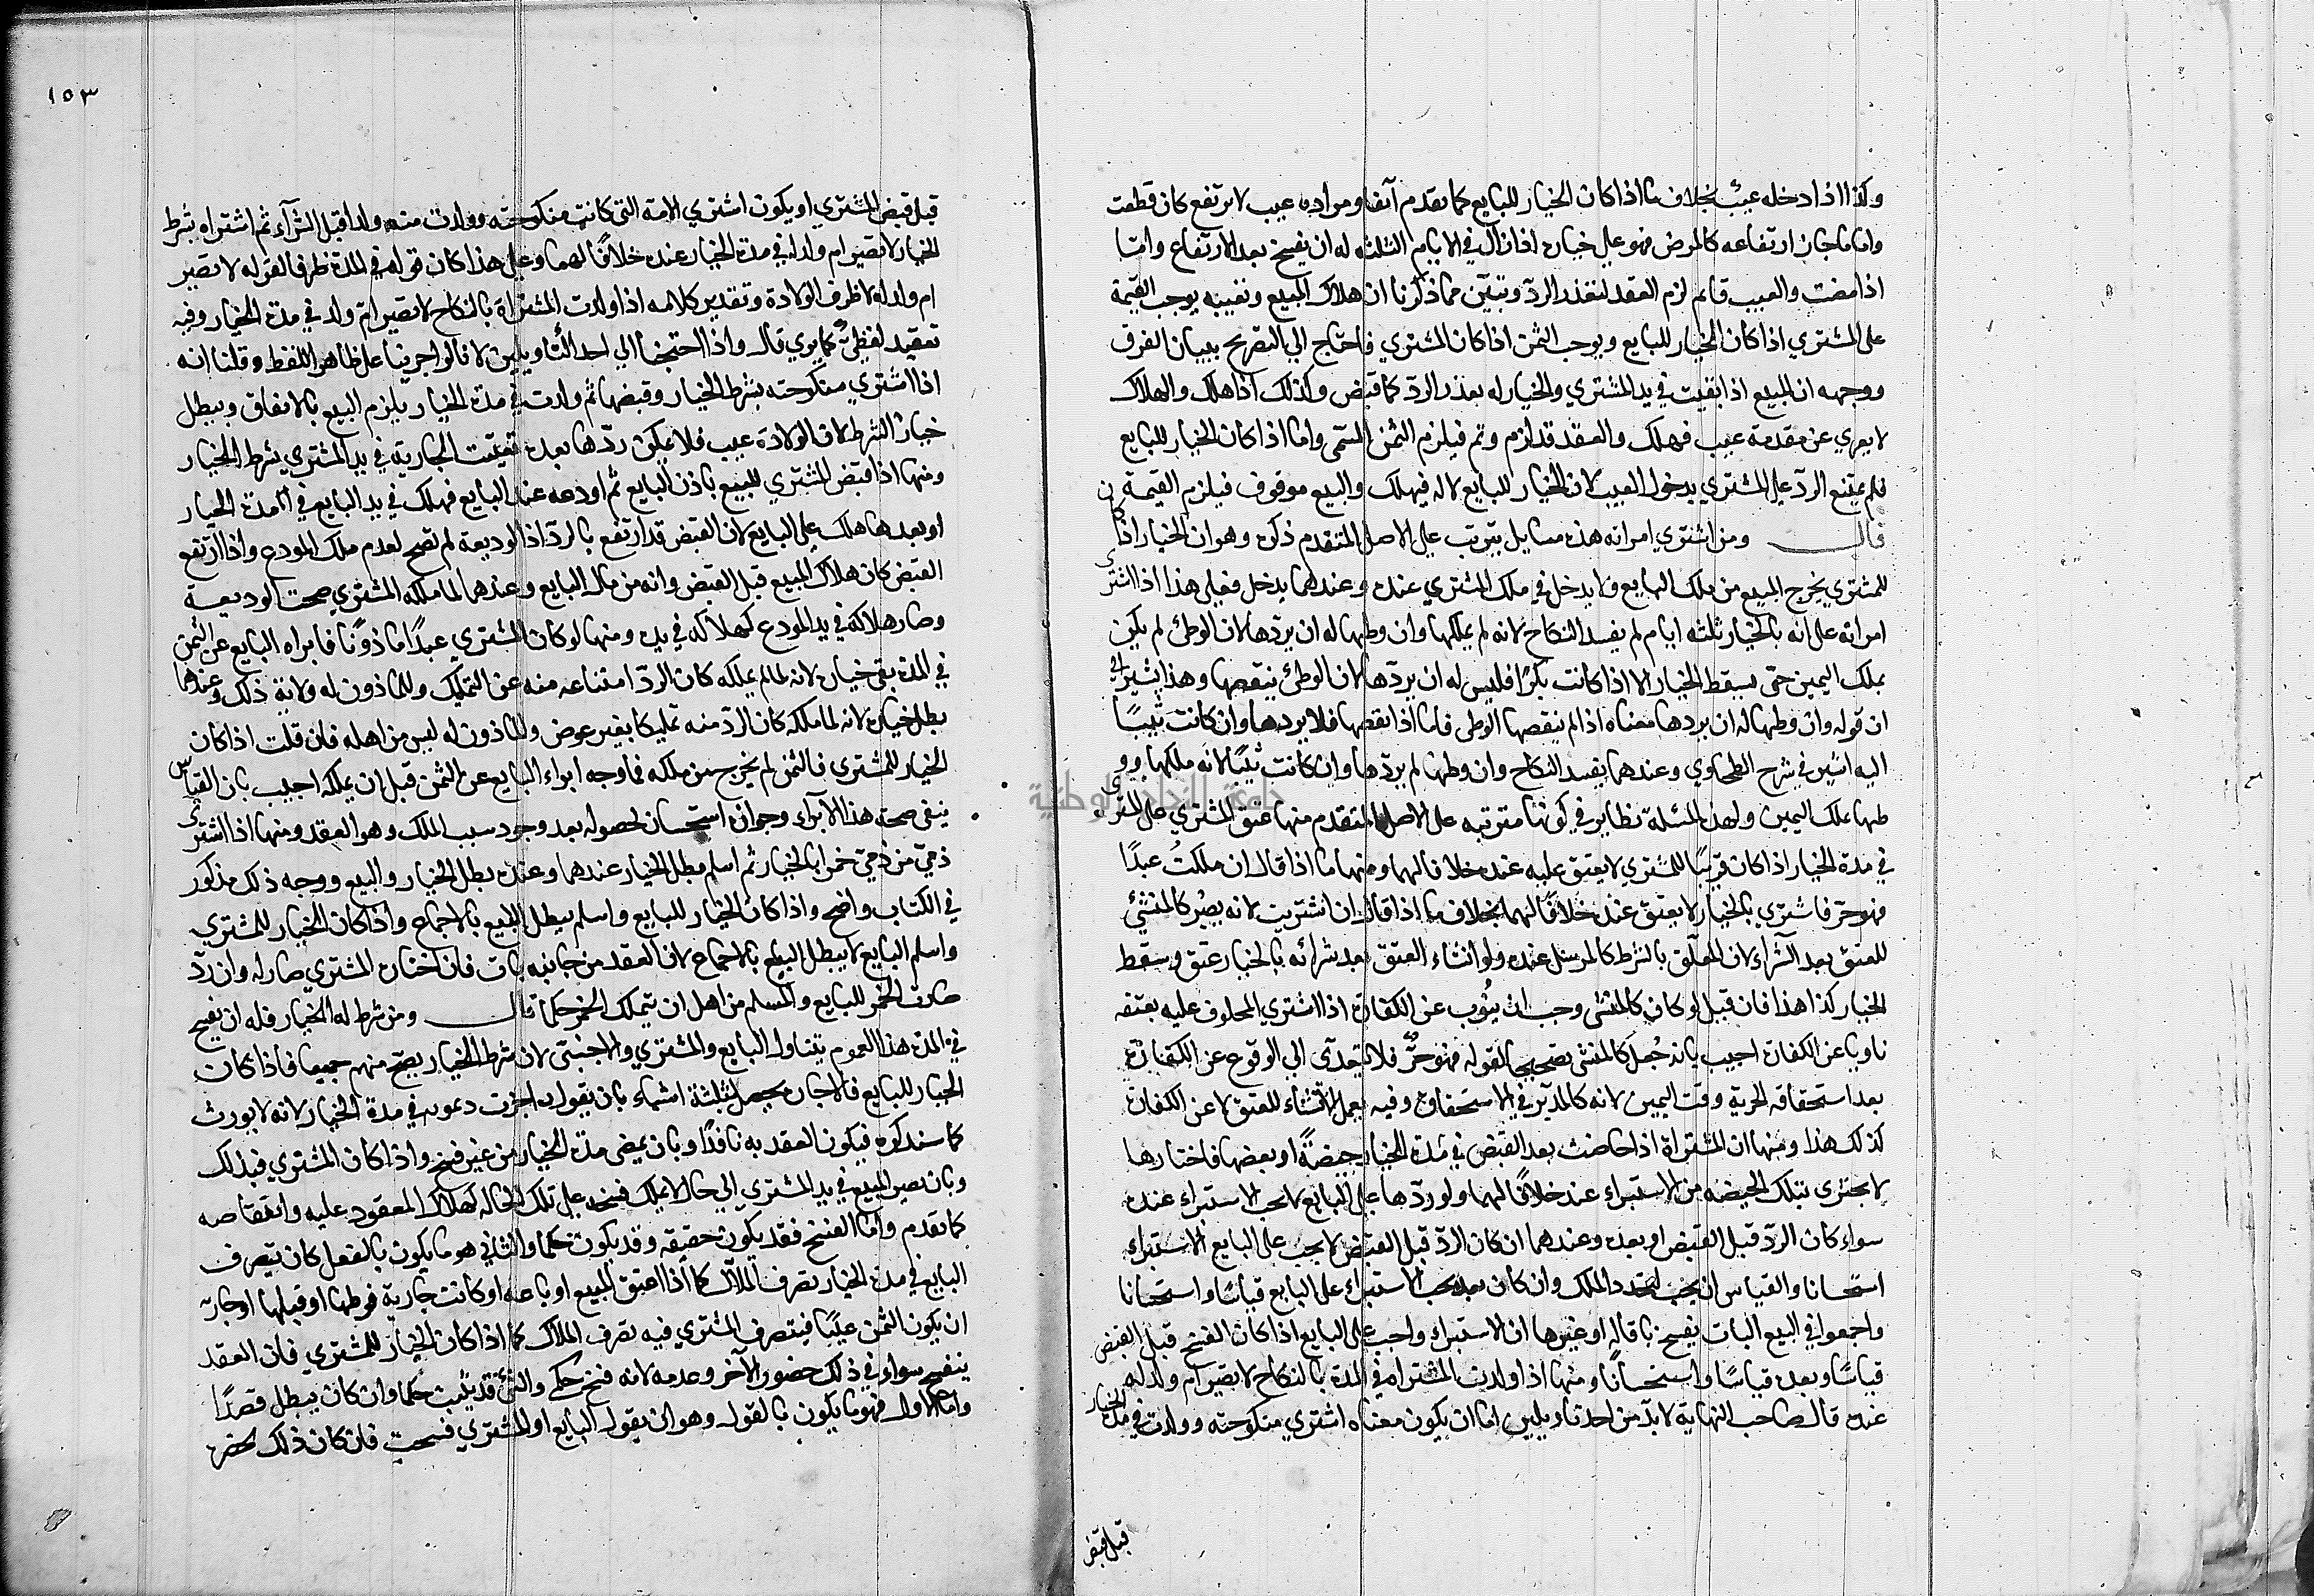 وكذا اذا دخله عيب بخلاف ما اذا كان الخيار للبايع كما تقدم آنفا ومراده عيب لا يرتفع كان قطعت
واما ما جاز ارتفاعه كالمرض فهو على خياره اذا زال في الايام الثلثه له ان يفسخ بعد الارتفاع واما
اذا مضت والعيب قايم لزم العقد لتعذر الرد وتبين مما ذكرنا ان هلاك المبيع وتعيبه يوجب القيمة
على المشتري اذا كان الخيار للبايع ويوجب الثمن اذا كان المشتري فاحتاج الي التصريح ببيان الفرق
ووجهه ان المبيع اذا بقيت في يد المشتري والخيار له تعذر الرد كما قبض وكذلك اذا هلك والهلاك
لا يعرى عن مقدمة عيب فهلك والعقد قد لزم وتم فيلزم الثمن المسمى واما اذا كان الخيار للبايع
فلم يمتنع الرد على المشتري بدخول العيب لان الخيار للبايع لا له فيهلك والبيع موقوف فيلزم القيمة
قال ومن اشتري امراته هذه مسايل يترتب على الاصل المتقدم ذكره وهو ان الخيار اذا كان
للمشتري يخرج المبيع من ملك البايع وما يدخل في ملك المشتري عنده وعندهما يدخل فعلى هذا اذا اشترى
امراته على انه بالخيار ثلثه ايام لم يفسد النكاح لانه لم يملكها وان وطيها له ان يردها لان الوطئ لم يكن
بملك اليمين حتى يسقط الخيار الا اذا كانت بكرا فليس له ان يردها لان الوطئ ينقصها وهذا يشير الى
ان قوله وان وطيها له ان يردها معناه اذا لم ينقصها الوطى فاما اذا نقصها فلا يردها وان كانت ثيبا
اليه اشير في شرح الطحاوي وعندهما يفسد النكاح وان وطيها لم يردها وان كانت ثيبا لانه ملكها ووى
طيها بملك اليمين ولهذه المسئلة نظاير في كونها مترتبه على الاصل المتقدم منها عتق المشتري على المشترى
في مدة الخيار اذا كان قريبا للمشتري لا يعتق عليه عنده خلافا لهما ومنها ما اذا قال ان ملكت عبدا
فهو حر فاشتري بالخيار لا يعتق عنده خلافا لهما بخلاف ما اذا قال ان اشتريت لانه يصير كالمنشئ
للعتق بعد الشراء لان المعلق بالشرط كالمرسل عنده ولو انشاء العتق بعد شرائه بالخيار عتق وسقط
الخيار كذا هذا فان قيل لو كان كالمنشى وجب ان ينوب عن الكفارة اذا اشتري المحلوف عليه بعتقه
ناويا عن الكفارة اجيب بانه جعل كالمنشئ تصحيحا لقوله فهو حر فلا يتعدى الي الوقوع عن الكفارة
بعد استحقاقه الحرية وقت اليمين لانه كالمدبر في الاستحقاق وفيه يعمل الانشاء للعتق لا عن الكفارة
كذلك هذا ومنها ان المشتراة اذا حاضت بعد القبض في مدة الخيار حيضة او بعضها فاختارها
لا يجتزى بتلك الحيضه من الاستبراء عنده خلافا لهما ولو ردها على البايع لا يجب الاستبراء عنده
سواء كان الرد قبل القبض او بعده وعندهما ان كان الرد قبل القبض لا يجب على البايع الاستبراء
استحسانا والقياس ان يجب لتجدد الملك وان كان بعده يجب الاستبراء على البايع قياسا واستحسانا
واجمعوا في البيع البات يفسخ باقاله او غيرها ان الاستبراء واجب على البايع اذا كان الفسخ قبل القبض
قياسا وبعده قياسا واستحسانا ومنها اذا ولدت المشتراة في المدة بالنكاح لا تصير ام ولد له
عنده قال صاحب النهاية لا بد من احد تاويلين اما ان يكون معناه اشتري منكوحته وولدت في مدة الخيار
قبل قبض
١٥٣
قبل قبض المشتري او يكون اشتري الامة التي كانت منكوحته وولدت منه ولدا قبل الشرآء ثم اشتراه بشرط
الخيار لا تصير ام ولد له في مدة الخيار عنده خلافا لهما وعلى هذا كان قوله في المدة ظرفا لقوله لا تصير
ام ولد له لا ظرف الولادة وتقدير كلامه اذا ولدت المشتراة بالنكاح لا تصير ام ولد في مدة الخيار وفيه
تعقيد لفظي كما يري قال واذا احتجنا الي احد التأويلين لانا لو اجرينا على ظاهر اللفظ وقلنا انه
اذا اشتري منكوحته بشرط الخيار وقبضها ثم ولدت في مدة الخيار يلزم البيع بالاتفاق ويبطل
خيار الشرط لان الولادة عيب فلا يمكن ردها بعد ما تعيبت الجارية في يد المشتري بشرط الخيار
ومنها اذا قبض المشتري المبيع باذن البايع ثم اودعه عند البايع فهلك في يد البايع في مدة الخيار
او بعدها هلك على البايع لان القبض قد ارتفع بالرد اذ الوديعة لم تصح لعدم ملك المودع واذا ارتفع
القبض كان هلاك المبيع قبل القبض وانه من مال البايع وعندهما لما ملكه المشتري صحت الوديعة
وصار هلاكه في يد المودع كهلاكه في يده ومنها لو كان المشتري عبدا ماذونا فابراه البايع عن الثمن
في المدة بقى خياره لانه لما لم يملكه كان الرد امتناعه منه عن التملك وللماذون له ولاية ذلك وعندهما
بطل خياره لانه لما ملكه كان الرد منه تمليكا بغير عوض والماذون له ليس من اهله فان قلت اذا كان
الخيار للمشتري فالثمن لم يخرج من ملكه فما وجه ابراء البايع عن الثمن قبل ان يملكه اجيب بان القياس
ينفى صحة هذا الابراء وجوازه استحسان لحصوله بعد وجود سبب الملك وهو العقد ومنها اذا اشترى
ذمي من ذمي خمرا بالخيار ثم اسلم بطل الخيار عندهما وعنده بطل الخيار والبيع ووجه ذلك مذكور
في الكتاب واضح واذا كان الخيار للبايع واسلم يبطل البيع بالاجماع واذا كان الخيار للمشتري
واسلم البايع لا يبطل البيع بالاجماع لان العقد من جانبه بات فان اختاره المشتري صار له وان رد
صارت الخمر للبايع والمسلم من اهل ان يتملك الخمر حكما قال ومن شرط له الخيار فله ان يفسخ
في المدة هذا العموم يتناول البايع والمشتري والاجنبي لان شرط الخيار يصح منهم جميعا فاذا كان
الخيار للبايع فالاجازة يحصل بثلثة اشياء بان يقول اجزت وبموته في مدة الخيار لانه لا يورث
كما سنذكره فيكون العقد به نافذا وبان يمضى مدة الخيار من غير فسخ واذا كان المشتري فبذلك
وبان يصير المبيع في يد المشتري الي حال لا يملك فسخه على تلك الحاله كهلاك المعقود عليه وانتقاصه
كما تقدم واما الفسخ فقد يكون حقيقه وقد يكون حكما والثاني هو ما يكون بالفعل كان يتصرف
البايع في مدة الخيار تصرف الملاك كما اذا اعتق المبيع او باعه او كانت جارية فوطيها او قبلها او جاز
ان يكون الثمن عينا فيتصرف المشتري فيه تصرف الملاك كما اذا كان الخيار للمشتري فان العقد
ينفسخ سواء في ذلك حضور الآخر وعدمه لانه فسخ حكمي والشئ قد يثبت حكما وان كان يبطل قصدا
واما الاول فهو ما يكون بالقول وهو ان يقول البايع او المشتري فسخت فان كان ذلك بحضرة